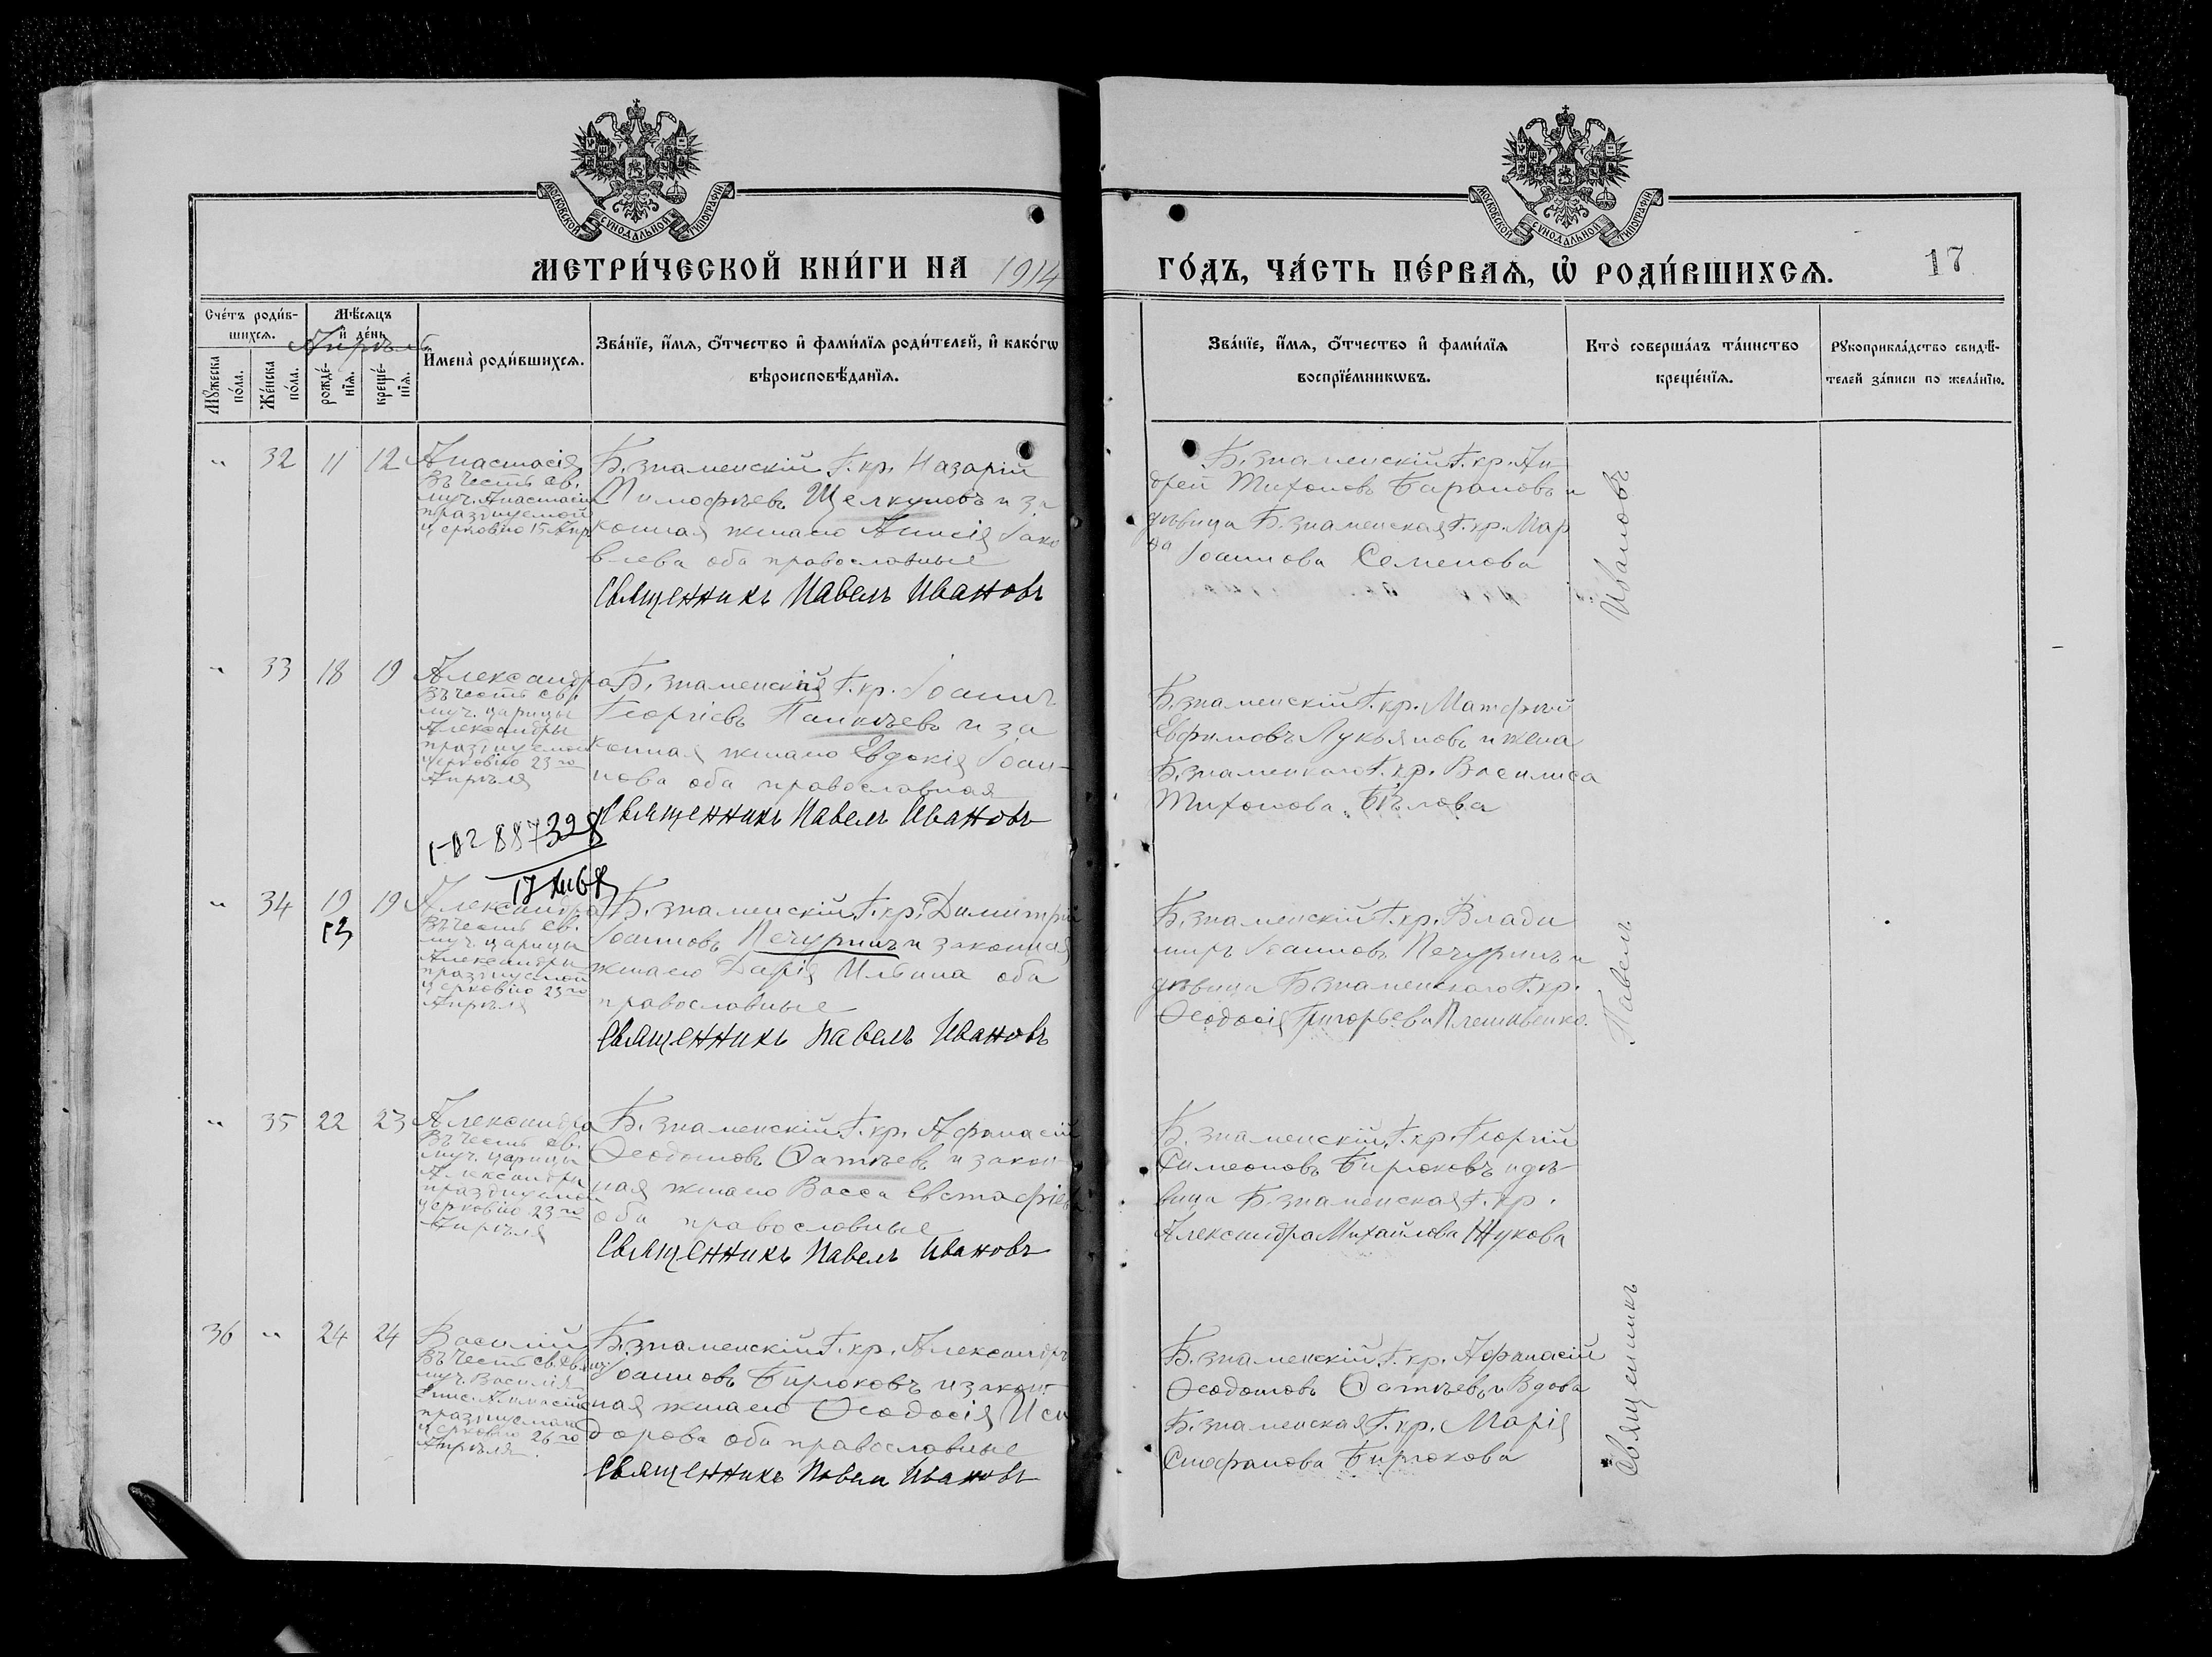 МОСКОВСКОЙ СУНОДАЛЬНОЙ ТИПОГРАФІИ
МОСКОВСКОЙ СУНОДАЛЬНОЙ ТИПОГРАФІИ
МЕТРИ́ЧЕСКОЙ КНИ́ГИ НА 1914
ГО́ДЪ, ЧА́СТЬ ПЕ́РВАѦ, Ѡ҆ РОДИ́ВШИХСѦ.
17
Сче́тъ роди́в-
шихсѧ.
Мꙋ́жеска по́ла.
Же́нска по́ла.
Мѣ́сѧцъ
и҆ де́нь
Апрѣль
рожде́-
нїѧ.
креще́-
нїѧ.
Имена̀ роди́вшихсѧ.
Зва́нїе, и҆́мѧ, ѻ҆́тчество и҆ фами́лїѧ роди́телей, и҆ како́гѡ
вѣроисповѣ́данїѧ.
Зва́нїе, и҆́мѧ, ѻ҆́тчество и҆ фами́лїѧ
воспрїе́мникѡвъ.
Кто̀ соверша́лъ та́инство
креще́нїѧ.
Рꙋкоприкла́дство свидѣ́-
телей за́писи по жела́нїю.
" 32 11 12
Анастасія
Въ честь св.
муч. Анастасіи
празднуемой
церковію 15 Апр
Б. знаменскій Г. кр. Назарій
Тимофѣевъ Щелкуновъ и за
конная жена его Анисія Іако
влева оба православные
Священникъ Павелъ Ивановъ
Б. знаменскій Г. кр. Ан
дрей Тихоновъ Барановъ и
дѣвица Б. знаменская Г. кр. Мар
ѳа Іоаннова Семенова
" 33 18 19
Александра
Въ честь св.
муч. царицы
Александры
празднуемой
церковію 23го
Апрѣля
Б. знаменскій Г. кр. Іоаннъ
Георгіевъ и за
конная жена его Евдокія Іоан-
нова оба православная
Священникъ Павелъ Ивановъ
Б. знаменскій Г. кр. Матфей
Евфимовъ Лукьяновъ и жена
Б. знаменскаго Г. кр. Василиса
Тихонова Бѣлова
887328
" 34 19 19
13
Александра
Въ честь св.
муч. царицы
Александры
празднуемой
церковію 23го
Апрѣля
Б. знаменскій Г. кр. Димитрій
Іоанновъ Печуринъ и законная
жена его Дарія Ильина оба
православные
Священникъ Павелъ Ивановъ
Б. знаменскій Г. кр. Влади
миръ Іоанновъ Печуринъ и
дѣвица Б. знаменскаго Г. кр.
Ѳеодосія Григорьева
" 35 22 23
Александра
Въ честь св.
муч. царицы
Александры
празднуемой
церковію 23го
Апрѣля
Б. знаменскій Г. кр. Афанасій
Ѳеодотовъ Ѳатѣевъ и закон-
ная жена его Васса Евстафіев
оба православные
Священникъ Павелъ Ивановъ
Б. знаменскій Г. кр. Георгій
Симеоновъ Бирюковъ и дѣ-
вица Б. знаменская Г. кр.
Александра Михайлова Жукова
36 " 24 24
Василій
Въ честь св. свящ.
муч. Василія
Епис. Амасій
празднуемаго
церковію 26го
Апрѣля
Б. знаменскій Г. кр. Александръ
Іоанновъ Бирюковъ и закон-
ная жена его Ѳеодосія Иси
дорова оба православные
Священникъ Павелъ Ивановъ
Б. знаменскій Г. кр. Афанасій
Ѳеодотовъ Ѳатѣевъ и вдова
Б. знаменская Г. кр. Марія
Стефанова Бирюкова
Священникъ Павелъ Ивановъ